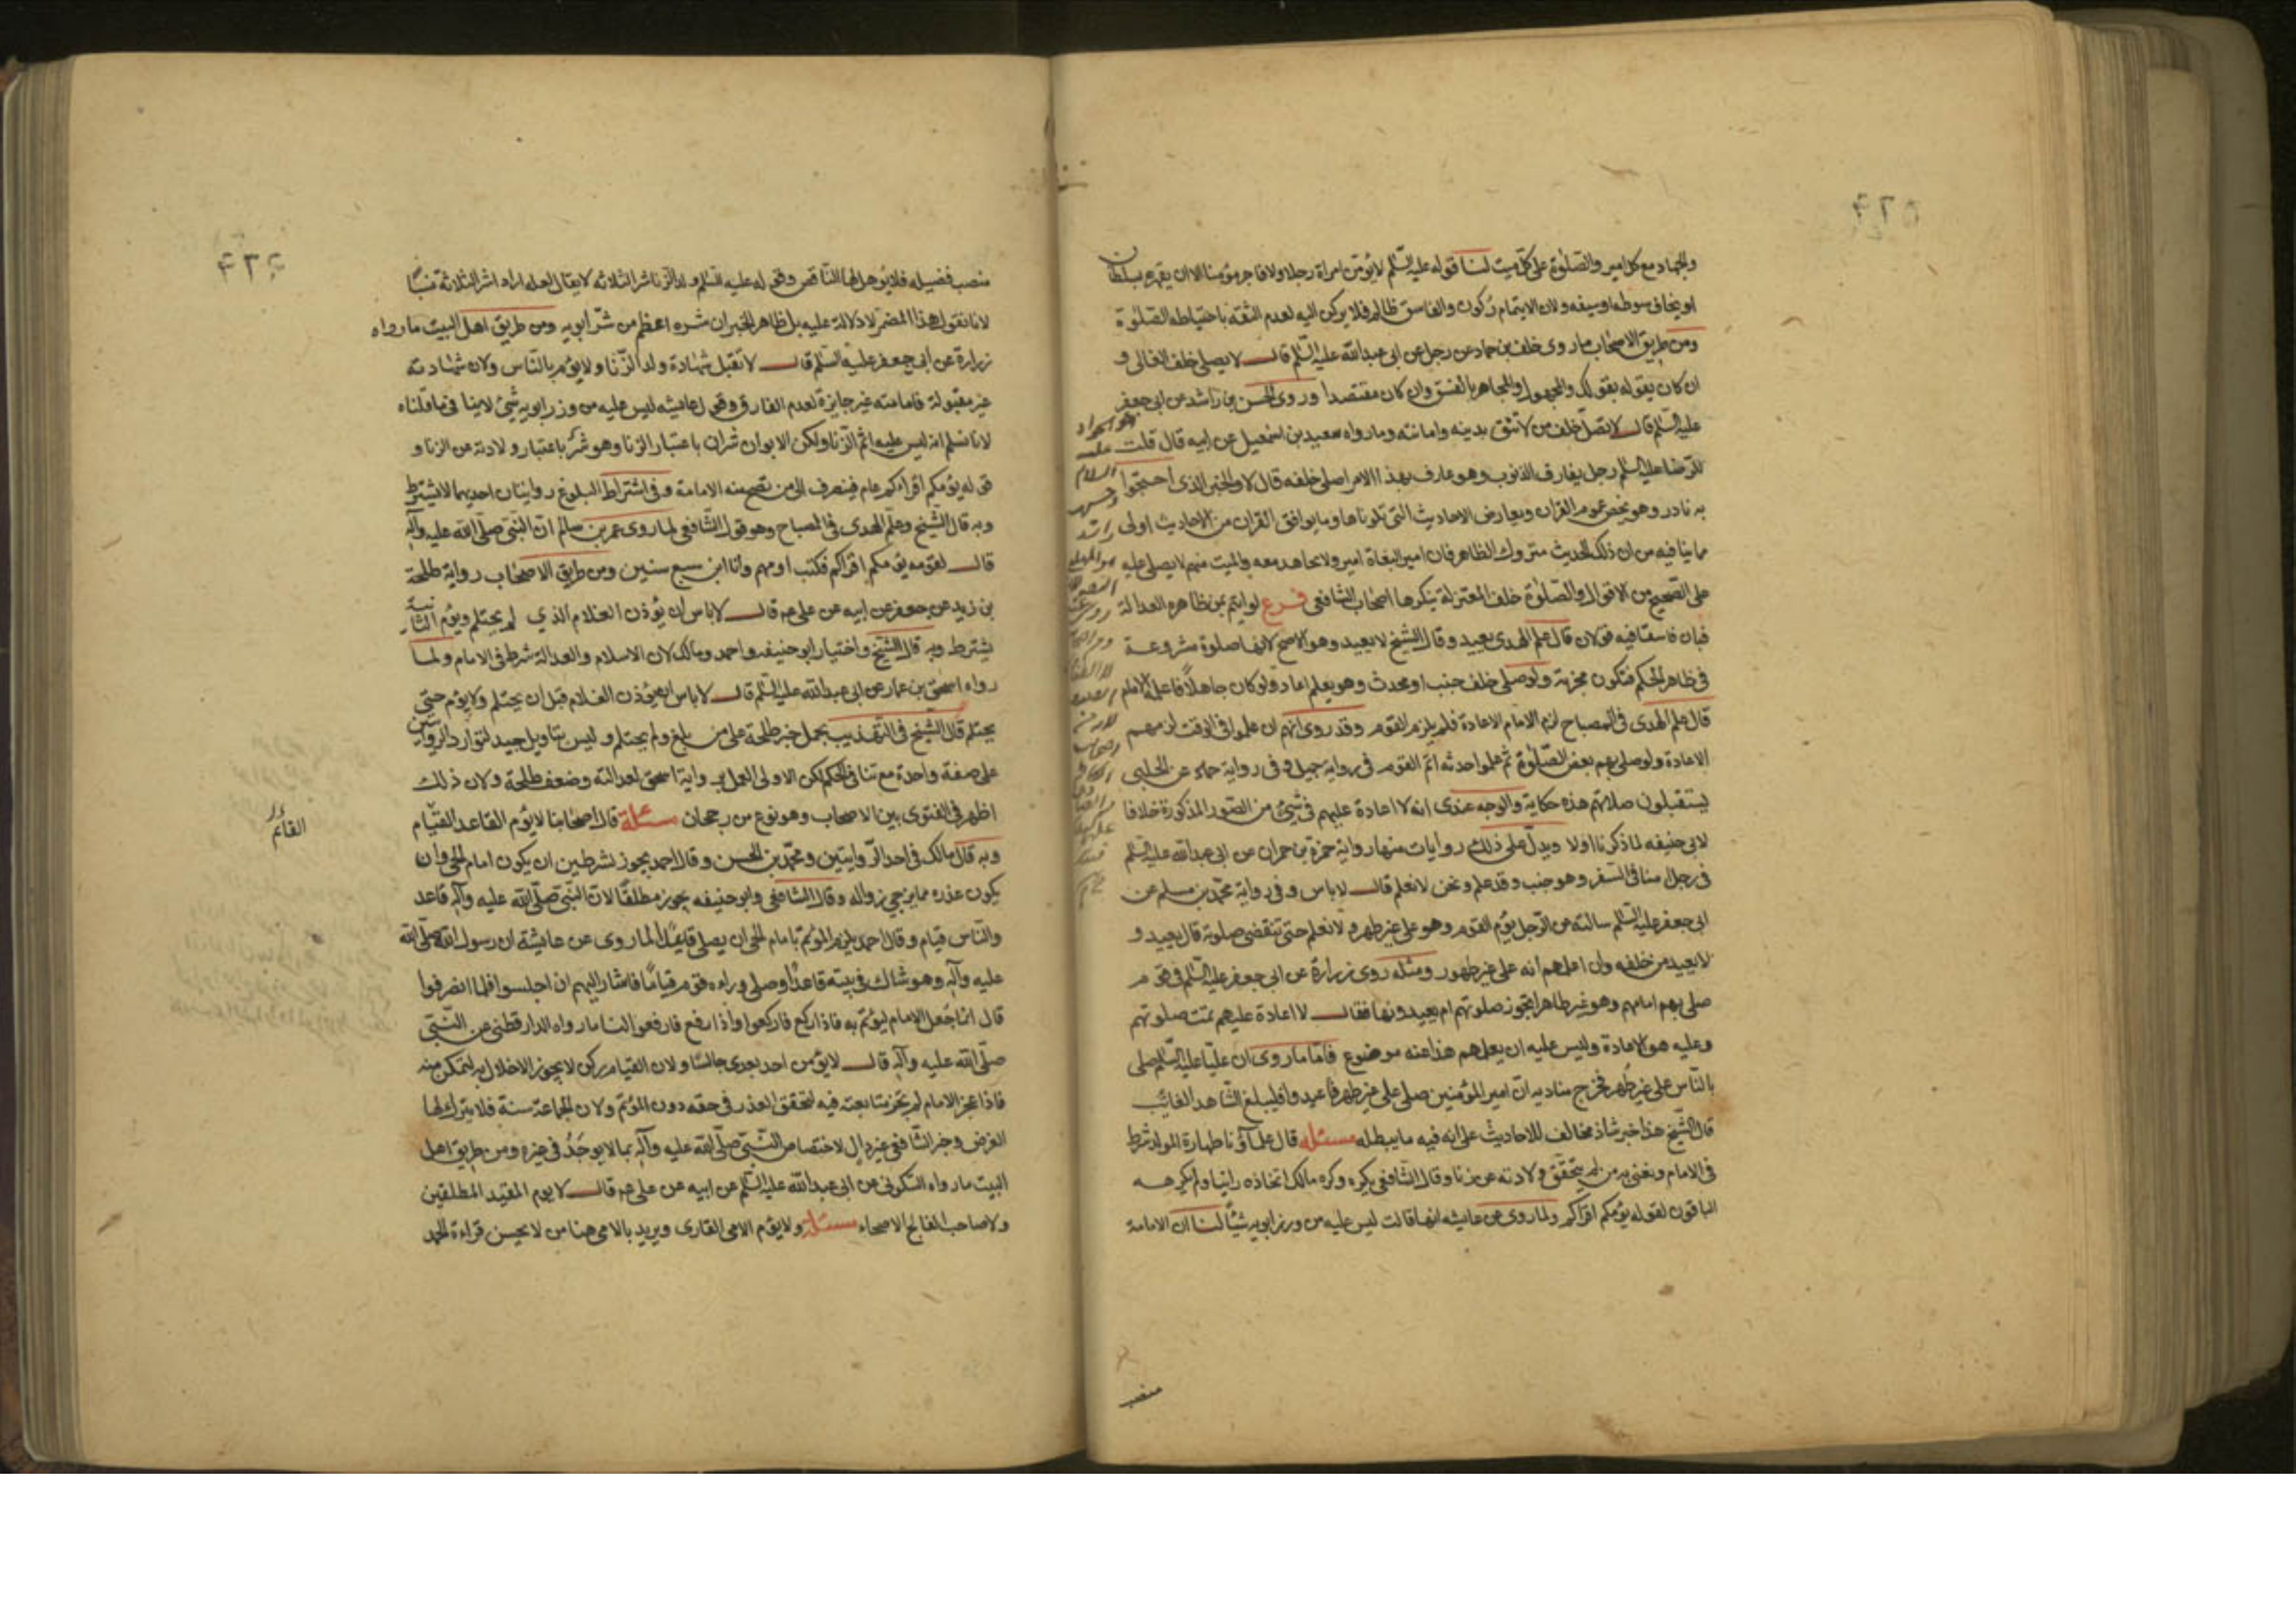 والجهاد مع كل امير والصلوة على كل ميت لنا قوله عليه السلم لا يؤمن امراة رجلا ولا فاجر مؤمنا الا ان يقهره بسلطان
او يخاف سوطه او سيفه ولان الايتمام ركون والفاسق ظالم فلا يركن اليه لعدم الثقة باحتياطه الصلوة
ومن طريق الاصحاب ما روى خلف بن حماد عن رجل عن ابى عبدالله عليه السلم قال لا يصلى خلف الغالى و
ان كان يقوله بقولك والمجهول والمجاهر بالفسق وان كان مقتصدا وروى الحسن بن راشد عن ابى جعفر
عليه السلم قال لا تصل خلف من لا تثق بدينه وامانته وما رواه سعيد بن اسمعيل عن ابيه قال قلت
للرضا عليه السلم رجل يقارف الذنوب وهو عارف بهذا الامر اصلى خلفه قال لا والخبر الذى احتجوا
به نادر وهو يخص عموم القران ويعارض الاحاديث التى تلوناها وما يوافق القران من الاحاديث اولى
مما ينافيه من ان ذلك الحديث متروك الظاهر فان امير البغاة امير ولا يجاهد معه والميت منهم لا يصلى عليه
على الصحيح من الاقوال والصلوة خلف المعتزلة ينكرها اصحاب الشافعى فرع لو ايتم بمن ظاهره العدالة
فبان فاسقا فيه قولان قال علم الهدى يعيد وقال الشيخ لا يعيد وهو الاصح لانها صلوة مشروعة
فى ظاهر الحكم فتكون مجزية ولو صلى خلف جنب او محدث وهو يعلم اعاد ولو كان جاهلا فاعلم الامام
قال علم الهدى فى المصباح لزم الامام الاعادة فلم يلزم القوم وقد روى انهم ان علموا فى الوقت لزمهم
الاعادة ولو صلى بهم بعض الصلوة ثم علموا حدثه اتم القوم فى رواية جميل وفى رواية حماد عن الحلبى
يستقبلون صلاتهم هذه حكاية والوجه عندى انه لا اعادة عليهم فى شيئ من الصور المذكورة خلافا
لابى حنيفه لما ذكرنا اولا ويدل على ذلك روايات منها رواية حمزة بن حمران عن ابى عبدالله عليه السلم
فى رجل امنا فى السفر وهو جنب وقد علم ونحن لا نعلم قال لا باس وفى رواية محمد بن مسلم عن
ابى جعفر عليه السلم سالته عن الرجل يؤم القوم وهو على غير طهر ولا نعلم حتى تنقضى صلوته قال يعيد و
لا يعيد من خلفه وان اعلمهم انه على غير طهور ومثله روى زرارة عن ابى جعفر عليه السلم فى قوم
صلى بهم امامهم وهو غير طاهر اتجوز صلوتهم ام يعيدونها فقال لا اعادة عليهم تمت صلوتهم
وعليه هو الاعادة وليس عليه ان يعلمهم هذا عنه موضوع فاما ما روى ان عليا عليه السلم صلى
بالناس على غير طهر فخرج مناديه ان امير المؤمنين صلى على غير طهر فاعيدوا فليبلغ الشاهد الغائب
قال الشيخ هذا خبر شاذ مخالف للاحاديث على انه فيه ما يبطله مسئله قال علمآؤنا طهارة المولد شرط
فى الامام ونعنى به من لم يتحقق ولادته عن زنا وقال الشافعى يكره وكره مالك اتخاذه راتبا ولم يكرهه
الباقون لقوله يؤمكم اقراكم ولما روى عن عايشه انها قالت ليس عليه من وزر ابويه شيئا لنا ان الامامة
منصب
منصب فضيله فلا يؤهل لها الناقص وقوله عليه السلم ولد الزنا شر الثلاثه لا يقال لعله اراد اشر الثلاثة نسبا
لانا نقول هذا المضمر لا دلالة عليه بل ظاهر الخبر ان شره اعظم من شر ابويه ومن طريق اهل البيت ما رواه
زرارة عن ابى جعفر عليه السلم قال لا تقبل شهادة ولد الزنا ولا يؤم بالناس ولان شهادته
غير مقبولة فامامته غير جايزة لعدم الفارق وقول عايشه ليس عليه من وزر ابويه شيئ لا ينافى ما قلناه
لانا نسلم انه ليس عليه اثم الزنا ولكن الابوان شران باعتبار الزنا وهو شر باعتبار ولادته من الزنا و
قوله يؤمكم اقراءكم عام فينصرف الى من تصح منه الامامة وفى اشتراط البلوغ روايتان احديهما لا يشترط
وبه قال الشيخ وعلم الهدى فى المصباح وهو قول الشافعى لما روى عمر بن سالم ان النبى صلى الله عليه وآله
قال لقومه يؤمكم اقراكم فكنت اومهم وانا ابن سبع سنين ومن طريق الاصحاب رواية طلحة
بن زيد عن جعفر عن ابيه عن على عم قال لا باس ان يؤذن الغلام الذي لم يحتلم ويؤم الثانية
يشترط وبه قال الشيخ واختيار ابو حنيفه واحمد ومالك لان الاسلام والعدالة شرط فى الامام ولما
رواه اسحق بن عمار عن ابى عبدالله عليه السلم قال لا باس ان يؤذن الغلام قبل ان يحتلم ولا يؤم حتى
يحتلم قال الشيخ فى التهذيب يحمل خبر طلحة على من بلغ ولم يحتلم وليس بتاويل جيد لتوارد الروايتين
على صفة واحدة مع تنافى الحكم لكن الاولى العمل برواية اسحق لعدالته وضعف طلحة ولان ذلك
اظهر فى الفتوى بين الاصحاب وهو نوع من رجحان مسئلة قال اصحابنا لا يؤم القاعد القيام
القائم
وبه قال مالك فى احد الروايتين ومحمد بن الحسن وقال احمد يجوز بشرطين ان يكون امام الحى وان
يكون عذره مما يرجى زواله وقال الشافعى وابو حنيفه يجوز مطلقا لان النبى صلى الله عليه وآله قاعد
والناس قيام وقال احمد يلزم المؤتم بامام الحى ان يصلى قاعدا لما روى عن عايشة ان رسول الله صلى الله
عليه وآله وهو شاك فى بيته قاعدا وصلى وراءه قوم قياما فاشار اليهم ان اجلسوا فلما انصرفوا
قال انما جعل الامام ليؤتم به فاذا ركع فاركعوا واذا رفع فارفعوا لنا ما رواه الدارقطنى عن النبى
صلى الله عليه وآله قال لا يؤمن احد بعدى جالسا ولان القيام ركن لا يجوز الاخلال به لمتمكن منه
فاذا عجز الامام لم يجز متابعته فيه لتحقق العذر فى حقه دون المؤتم ولان الجماعة سنة فلا يترك لها
الفرض وخبر الشافعى غير دال لاختصاص النبى صلى الله عليه وآله بما لا يوجد فى غيره ومن طريق اهل
البيت ما رواه السكونى عن ابى عبدالله عليه السلم عن ابيه عن على عم قال لا يوم المقيد المطلقين
ولا صاحب الفالج الاصحاء مسئلة ولا يؤم الامى القارى ويريد بالامى هنا من لا يحسن قراءة الحمد